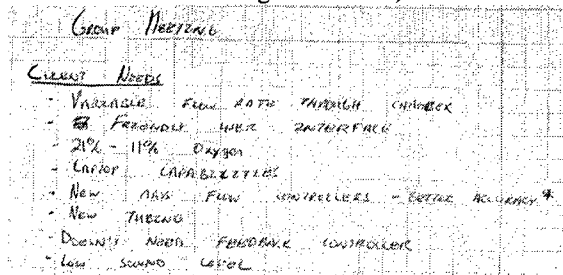 Group Meeting
Client Needs
- Variable flow rate through chamber
- Friendly user interface
- 21% - 11% Oxygen
- Laptop capabilities
- New mass flow controllers - better accuracy *
- New tubing
- Doesn't need feedback controller
- Low sound level